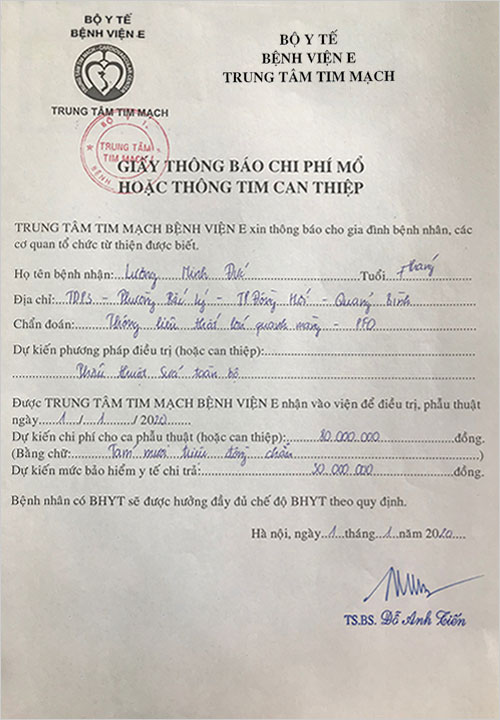 BỘ Y TẾ
BỆNH VIỆN E
TRUNG TÂM TIM MẠCH
BỘ Y TẾ
BỆNH VIỆN E
TRUNG TÂM TIM MẠCH
TRUNG TÂM
TIM MẠCH
GIẤY THÔNG BÁO CHI PHÍ MỔ
HOẶC THÔNG TIM CAN THIỆP
TRUNG TÂM TIM MẠCH BỆNH VIỆN E xin thông báo cho gia đình bệnh nhân, các
cơ quan tổ chức từ thiện được biết.
Họ tên bệnh nhân: Lương Minh Đức Tuổi tháng
Địa chỉ: TDP5 - Phường Bắc Lý - TP Đồng Hới - Quảng Bình
Chẩn đoán: Thông liên thất lỗ quanh màng - PFO
Dự kiến phương pháp điều trị (hoặc can thiệp):
Phẫu thuật sửa toàn bộ
Được TRUNG TÂM TIM MẠCH BỆNH VIỆN E nhận vào viện để điều trị, phẫu thuật
ngày 1 / 1 / 2020
Dự kiến chi phí cho ca phẫu thuật (hoặc can thiệp): 80.000.000 đồng.
(Bằng chữ: Tám mươi triệu đồng chẵn)
Dự kiến mức bảo hiểm y tế chi trả: 50 000 000 đồng.
Bệnh nhân có BHYT sẽ được hưởng đầy đủ chế độ BHYT theo quy định.
Hà nội, ngày 1 tháng 1 năm 2020
TS.BS. Đỗ Anh Tiến